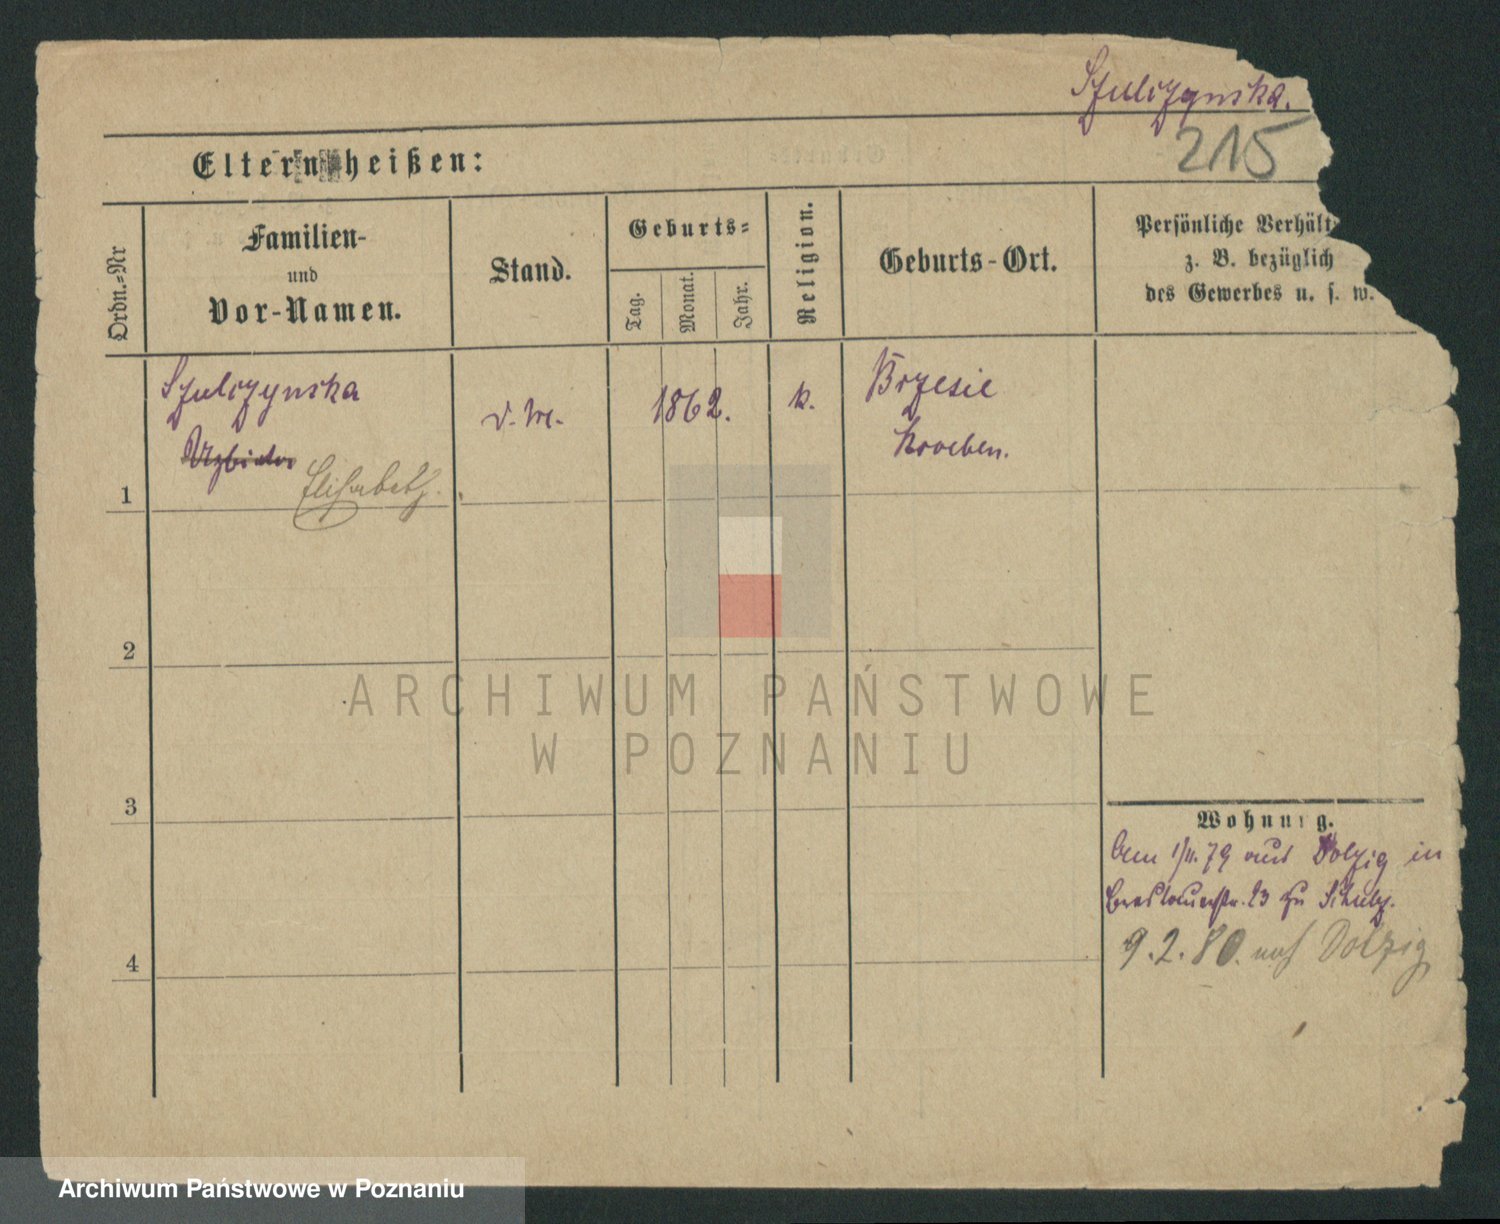 Szulczynska.
215
Eltern heißen:
Ordn.-Nr
Familien-
und
Vor-Namen.
Stand.
Geburts-
Tag.
Monat.
Jahr.
Religion.
Geburts-Ort.
Persönliche Verhält
z. B. bezüglich
des Gewerbes u. s. w.
Szulczynska
Elisabeth.
d. M.
1862.
k.
Brzesie
Kroeben.
1
2
3
4
Wohnung.
Am 1/11.79 aus Dolzig in
Breslauerstr. 23 zu Schulz.
9.2.80. nach Dolzig
ARCHIWUM PAŃSTWOWE
W POZNANIU
Archiwum Państwowe w Poznaniu